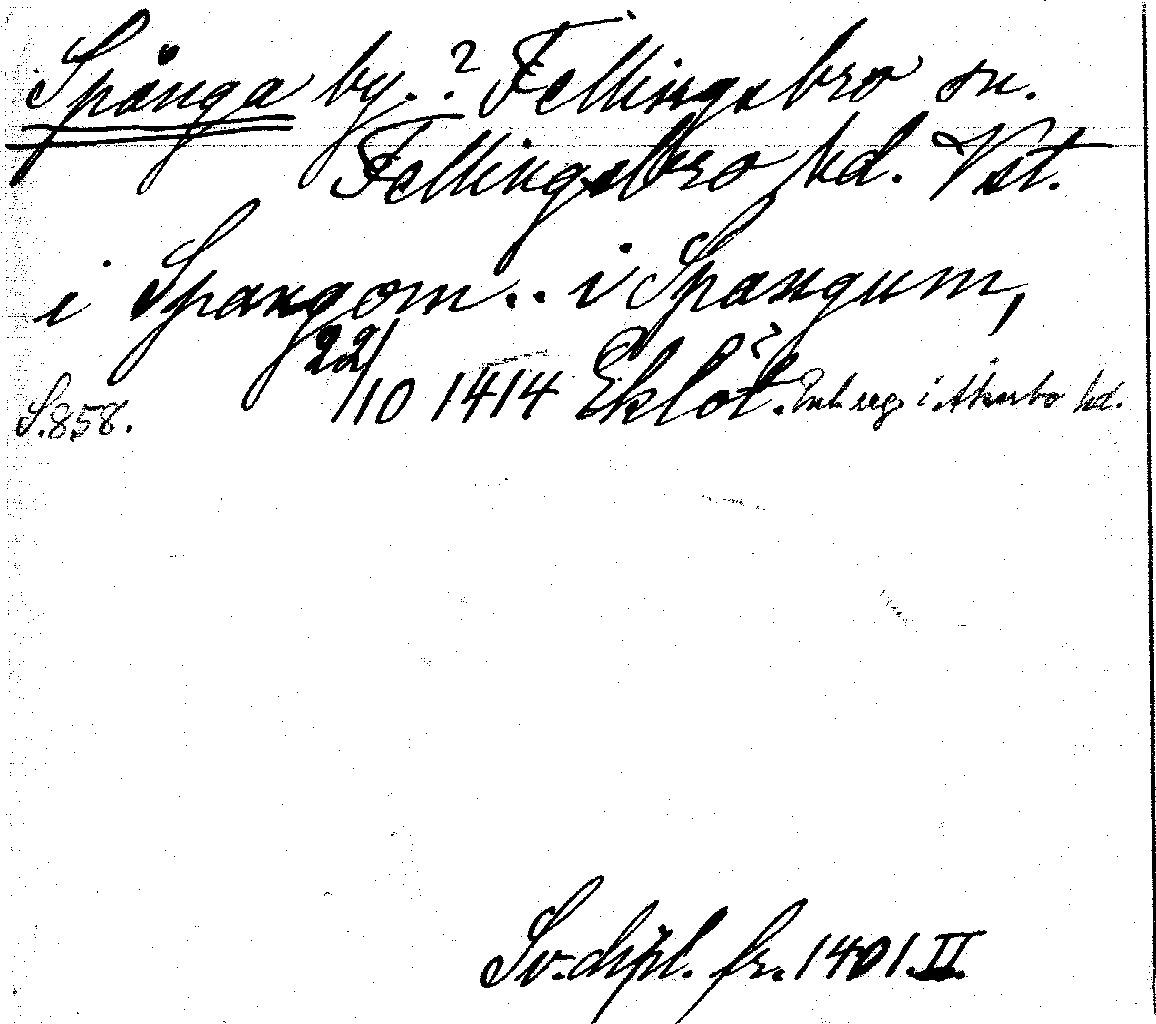 Spånga by.? Fellingsbro sn.
Fellingsbro hd. Vst.
i Spangom.. i Spangum,
22/10 1414 Eklöt. Enl. reg. i Åkerbo hd.
S. 858.
Sv. dipl. fr. 1401. II.